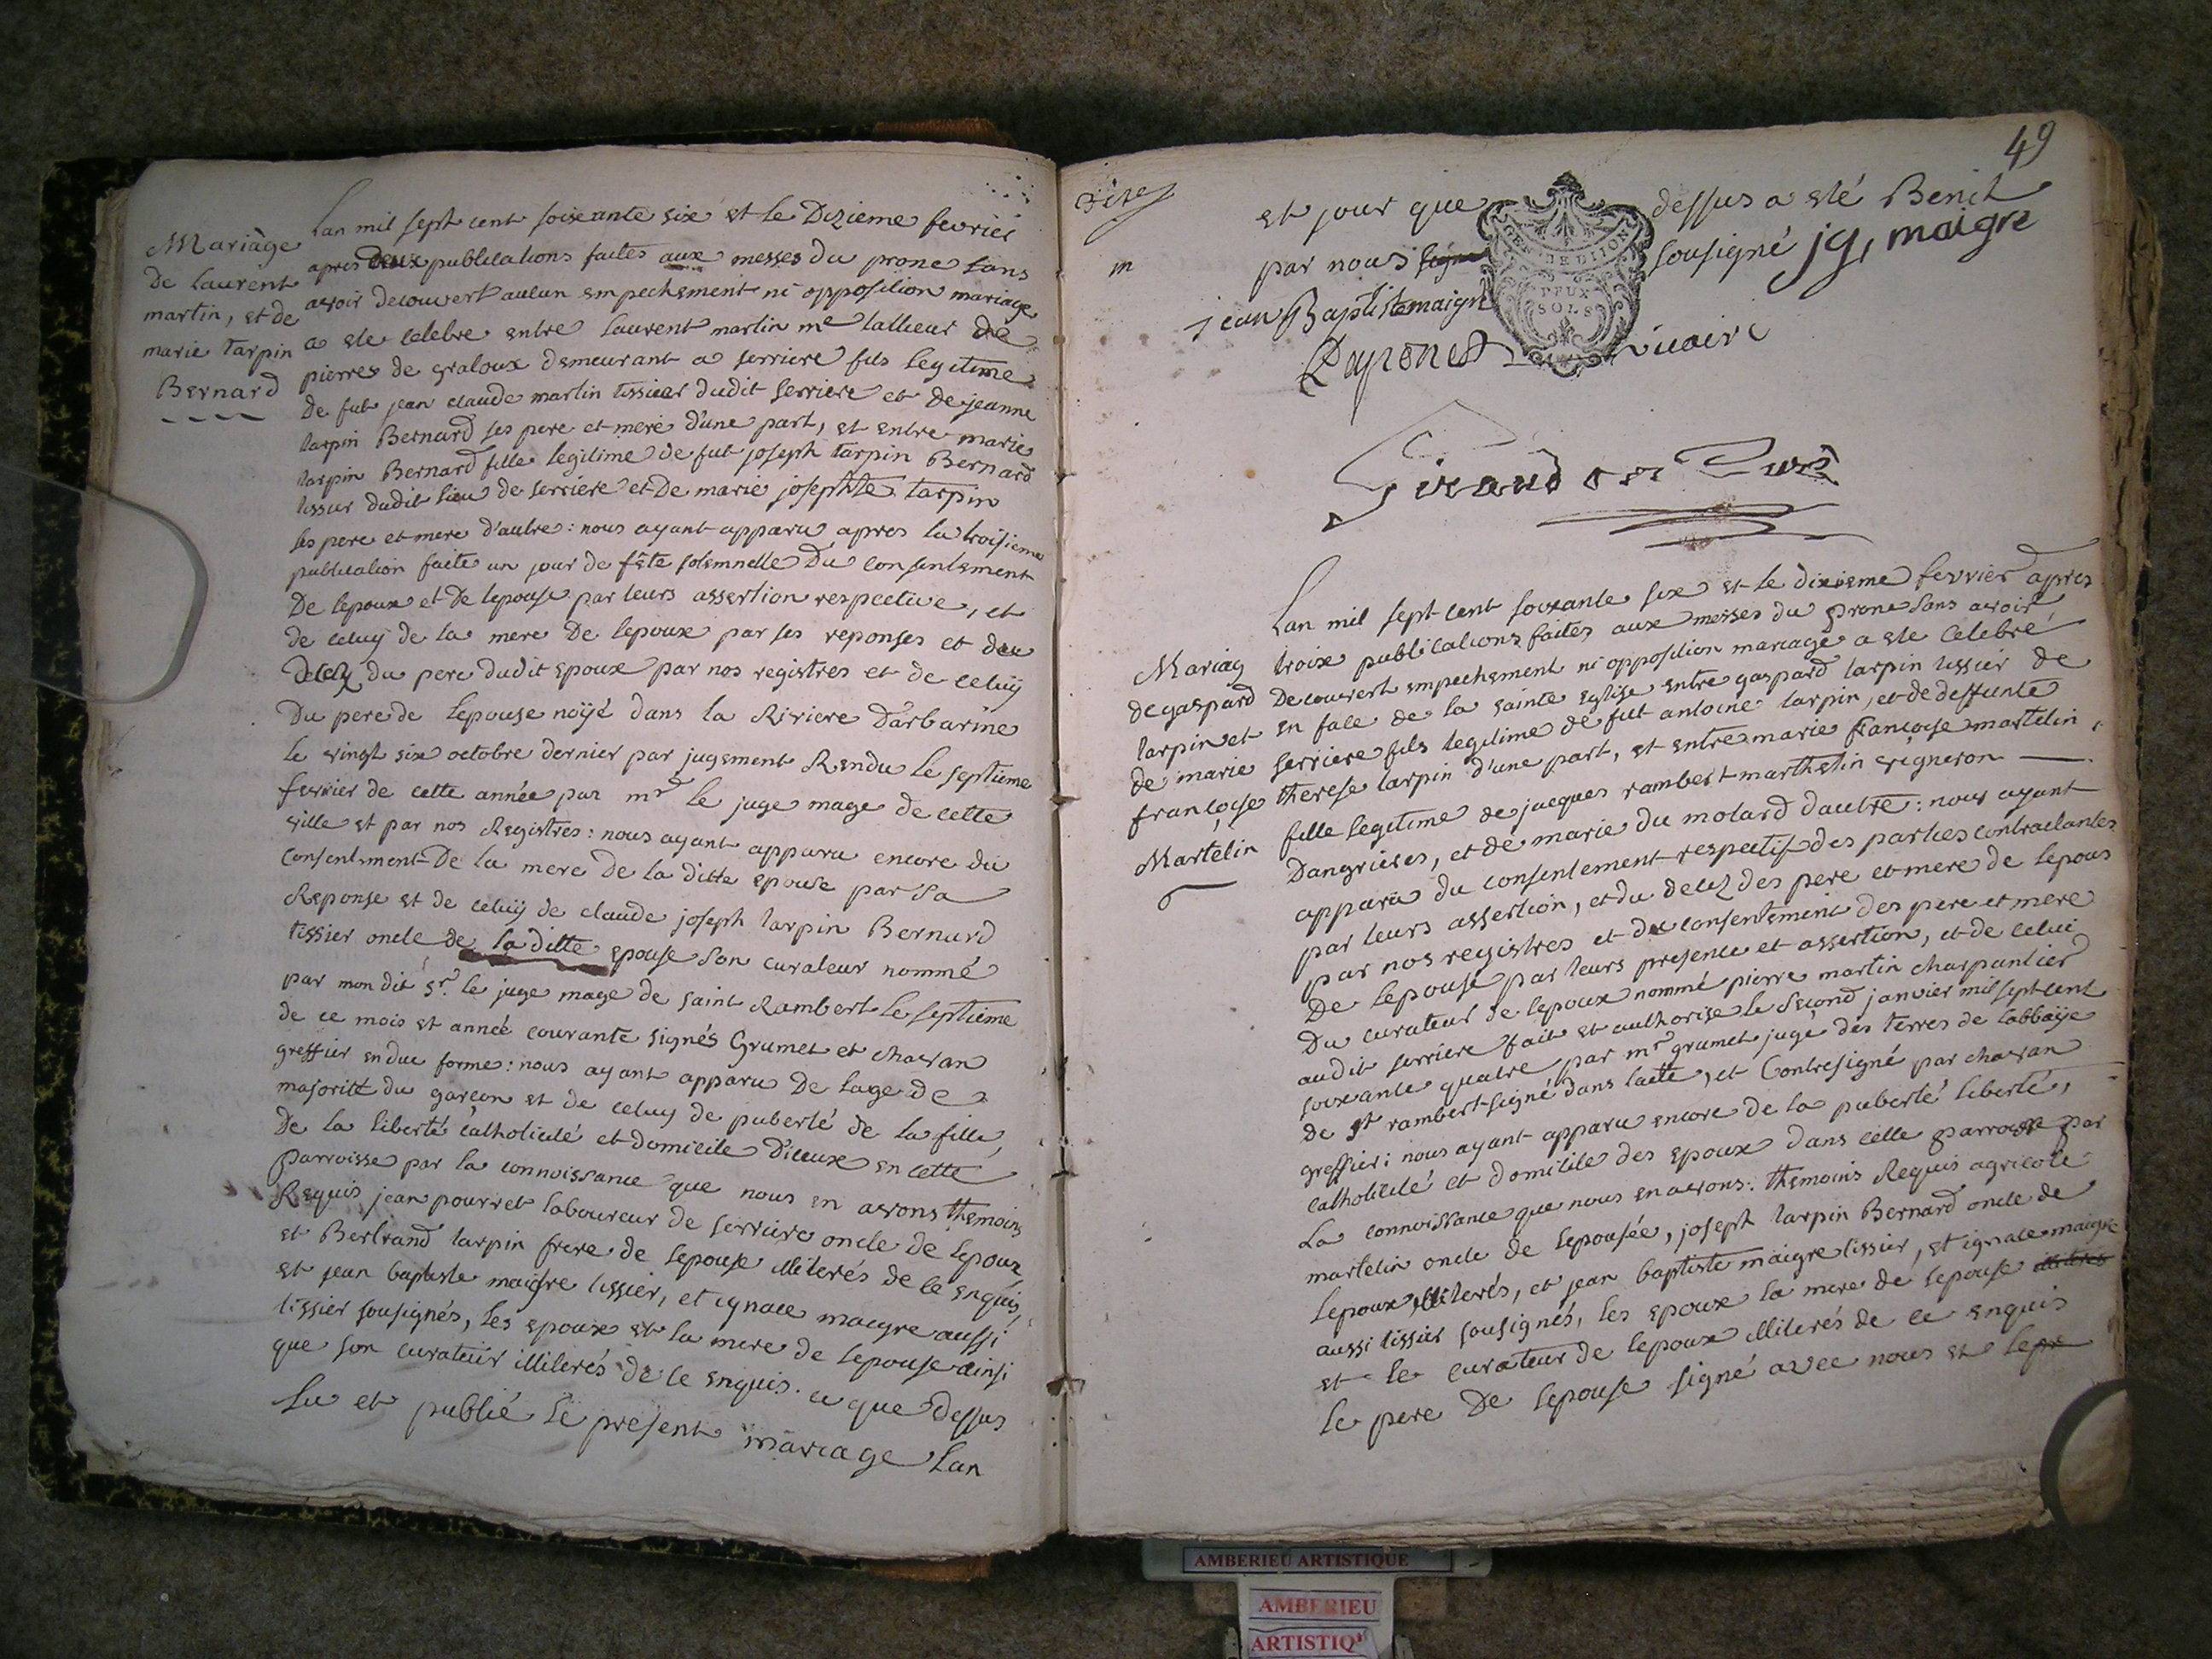 Mariage
de Laurent
martin, et de
marie tarpin
Bernard
Lan mil sept cent soixante six et le Dizieme fevrier
apres deux publications faites aux messes du prone sans
avoir decouvert aucun empechement ni opposition mariage
a ete celebre entre Laurent martin me tallieur de
pierres de graloux demeurant a serriere fils legitime
de fut jean claude martin tissier dudit serriere et de jeanne
tarpin Bernard ses pere et mere d'une part, et entre marie
tarpin Bernard fille legitime de fut joseph tarpin Bernard
tissier dudit lieu de serriere et de marie josephte tarpin
ses pere et mere d'autre : nous ayant apparu apres la troisieme
publication faite un jour de fête solemnelle Du consentement
De lepoux et de lepouse par leurs assertion respective, et
de celuy de la mere De lepoux par ses reponses et du
decez du pere dudit epoux par nos registres et de celuÿ
Du pere de lepouse noÿé dans la Riviere D'arbarine
le vingt six octobre dernier par jugement Rendu le septieme
fevrier de cette année par mr le juge mage de cette
ville et par nos Registres : nous ayant apparu encore du
Consentement De la mere De la ditte epouse par sa
Reponse et de celuÿ de claude joseph tarpin Bernard
tissier oncle de la ditte epouse son curateur nommé
par mon dit sr. le juge mage de saint Rambert le septieme
de ce mois et année courante signés Grumet et chavan
greffier en due forme : nous ayant apparu De lage de
majorité du garçon et de celuy de puberté de la fille,
De la liberté catholicité et domicile D'iceux en cette
parroisse par la connoissance que nous en avons themoins
Requis jean pourret laboureur de serriere oncle de lepoux
et Bertrand tarpin frere de lepouse illiterés de ce enquis,
et jean baptiste maigre tissier, et ignace maigre aussi
tissier sousignés, les epoux et la mere de lepouse ainsi
que son curateur illiterés de ce enquis. ce que dessus
Lu et publié le present mariage Lan
49
et jour que dessus a eté Benit
par nous signé sousigné jg, maigre
jean Baptiste maigre
GEN DE DIJON
DEUX
SOLS
vicaire
Giraud Curé
Mariag
de gaspard
tarpin et
de marie
françoise
Martelin
Lan mil sept cent soixante six et le dixieme fevrier apres
troix publications faites aux messes du prone sans avoir
Decouvert empechement ni opposition mariage a ete Celebré
en face de la sainte Eglise entre gaspard tarpin tissier de
serriere fils legitime de fut antoine tarpin, et de deffunte
therese tarpin d'une part, et entre marie françoise martelin
fille legitime de jacques rambert marthelin vigneron
Dangrieres, et de marie du molard dautre : nous ayant
apparu du consentement respectif des parties contractantes
par leurs assertion, et du decez des pere et mere de lepoux
par nos registres et du consentement des pere et mere
De lepouse par leurs presence et assertion, et de celui
Du curateur de lepoux nommé pierre martin charpantier
audit serriere fait et authorise le second janvier mil sept cent
soixante quatre par mr grumet juge des terres de labbaÿe
de st rambert signé dans lacte, et Contresigné par chavan
greffier : nous ayant apparu encore de la puberté liberté,
catholicité et domicile des epoux dans cette parroisse par
La connoissance que nous en avons : themoins Requis agricole
martelin oncle de lepousée, joseph tarpin Bernard oncle de
lepoux illiterés, et jean baptiste maigre tissier, et ignace maigre
aussi tissier sousignés, les epoux la mere de lepouse illiterés
et le curateur de lepoux illiterés de ce enquis
le pere De lepouse signé avec nous et lepr
AMBERIEU ARTISTIQUE
AMBERIEU
ARTISTIQ